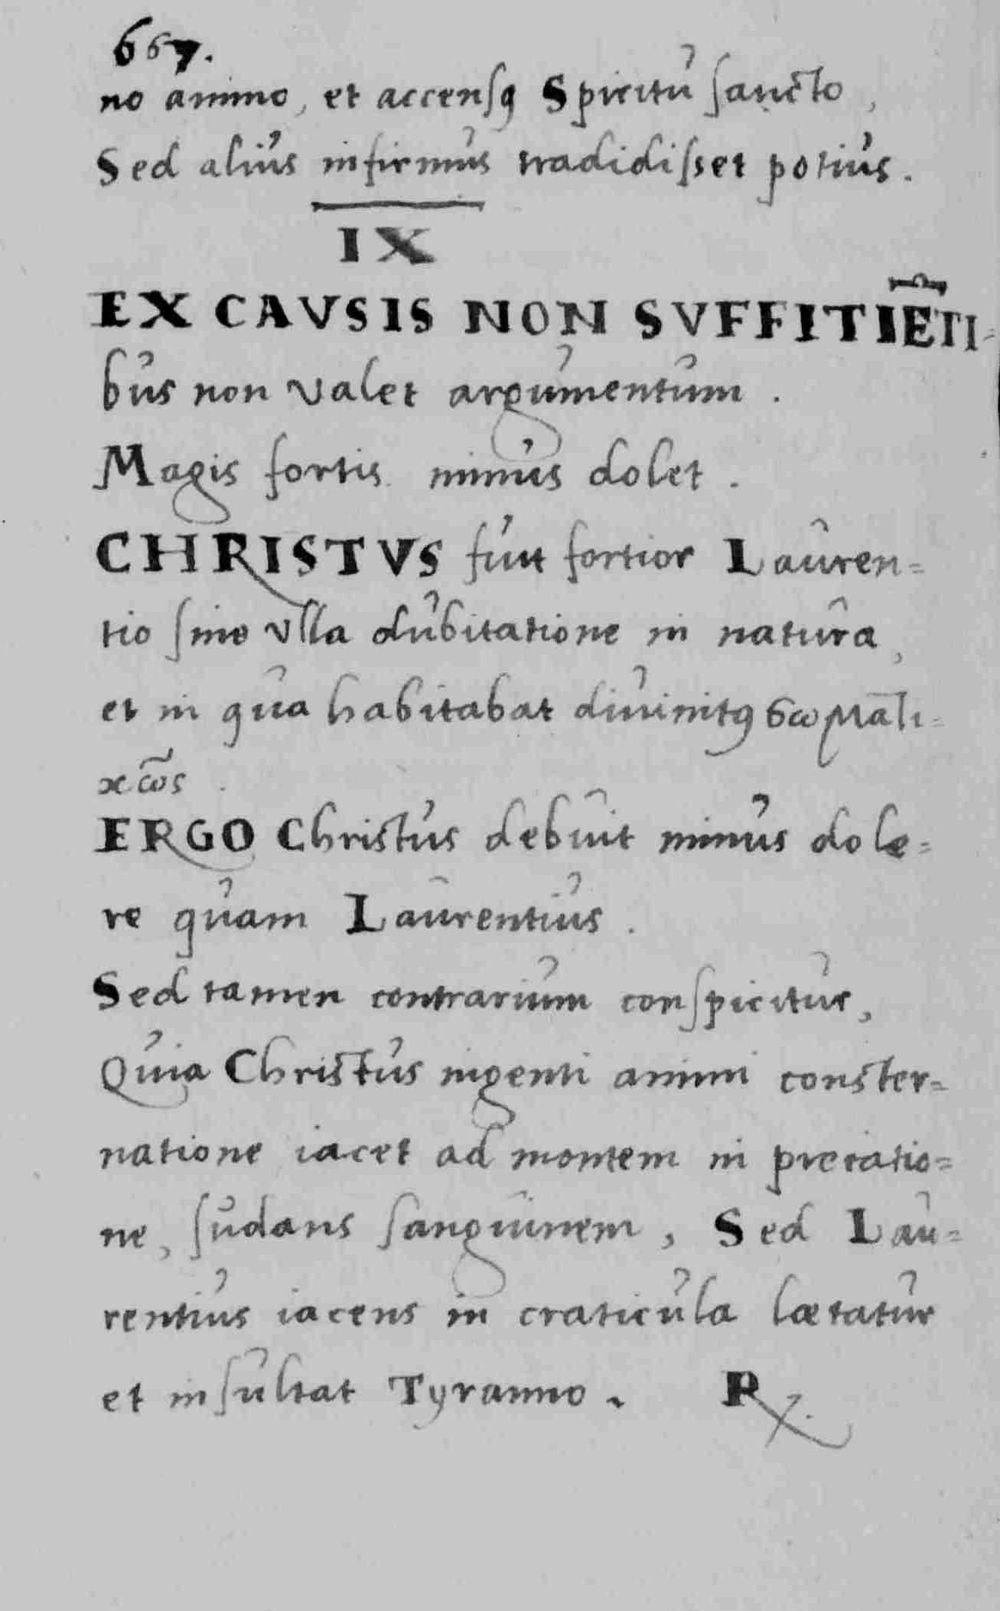 667.
no animo, et accensꝰ Spiritu ſancto,
Sed alius infirmus tradidiſset potius.
IX
EX CAVSIS NON SVFFITIE͞TI-
bus non valet argumentum.
Magis fortis minus dolet.
CHRISTVS fuit fortior Lauren=
tio ſine vlla dubitatione in natura,
et in qua habitabat diuinitꝰ σωματι=
κῶς.
ERGO Christus debuit minus dole=
re quam Laurentius.
Sed tamen contrarium conſpicitur,
Quia Christus ingenti animi conster=
natione iacet ad montem in precatio=
ne, ſudans ſanguinem, Sed Lau=
rentius iacens in craticula lætatur
et inſultat Tyranno. ℞.